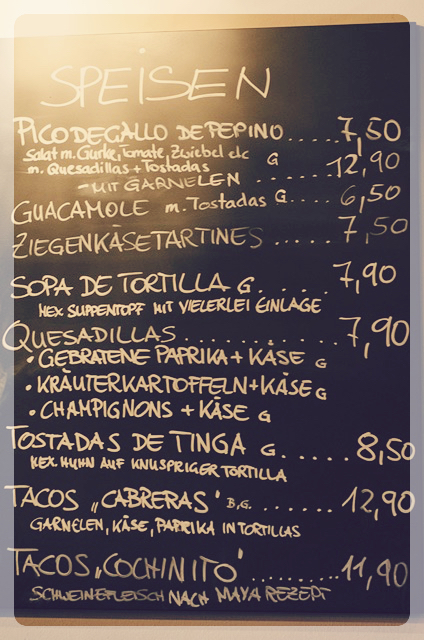 SPEISEN
PICO DE GALLO DE PEPINO......7,50
Salat m. Gurke, Tomate, Zwiebel etc G
m. Quesadillas + Tostadas
- MIT GARNELEN .....12,90
GUACAMOLE m. Tostadas G..... 6,50
ZIEGENKÄSETARTINES ...... 7,50
SOPA DE TORTILLA G.......7,90
MEX SUPPENTOPF MIT VIELERLEI EINLAGE
QUESADILLAS ............7,90
• GEBRATENE PAPRIKA + KÄSE G
• KRÄUTERKARTOFFELN + KÄSE G
• CHAMPIGNONS + KÄSE G
TOSTADAS DE TINGA G...... 8,50
MEX. HUHN AUF KNUSPRIGER TORTILLA
TACOS „CABRERAS" B,G. ....... 12,90
GARNELEN, KÄSE, PAPRIKA IN TORTILLAS
TACOS „COCHINITO" .........11,90
SCHWEINEFLEISCH NACH MAYA REZEPT